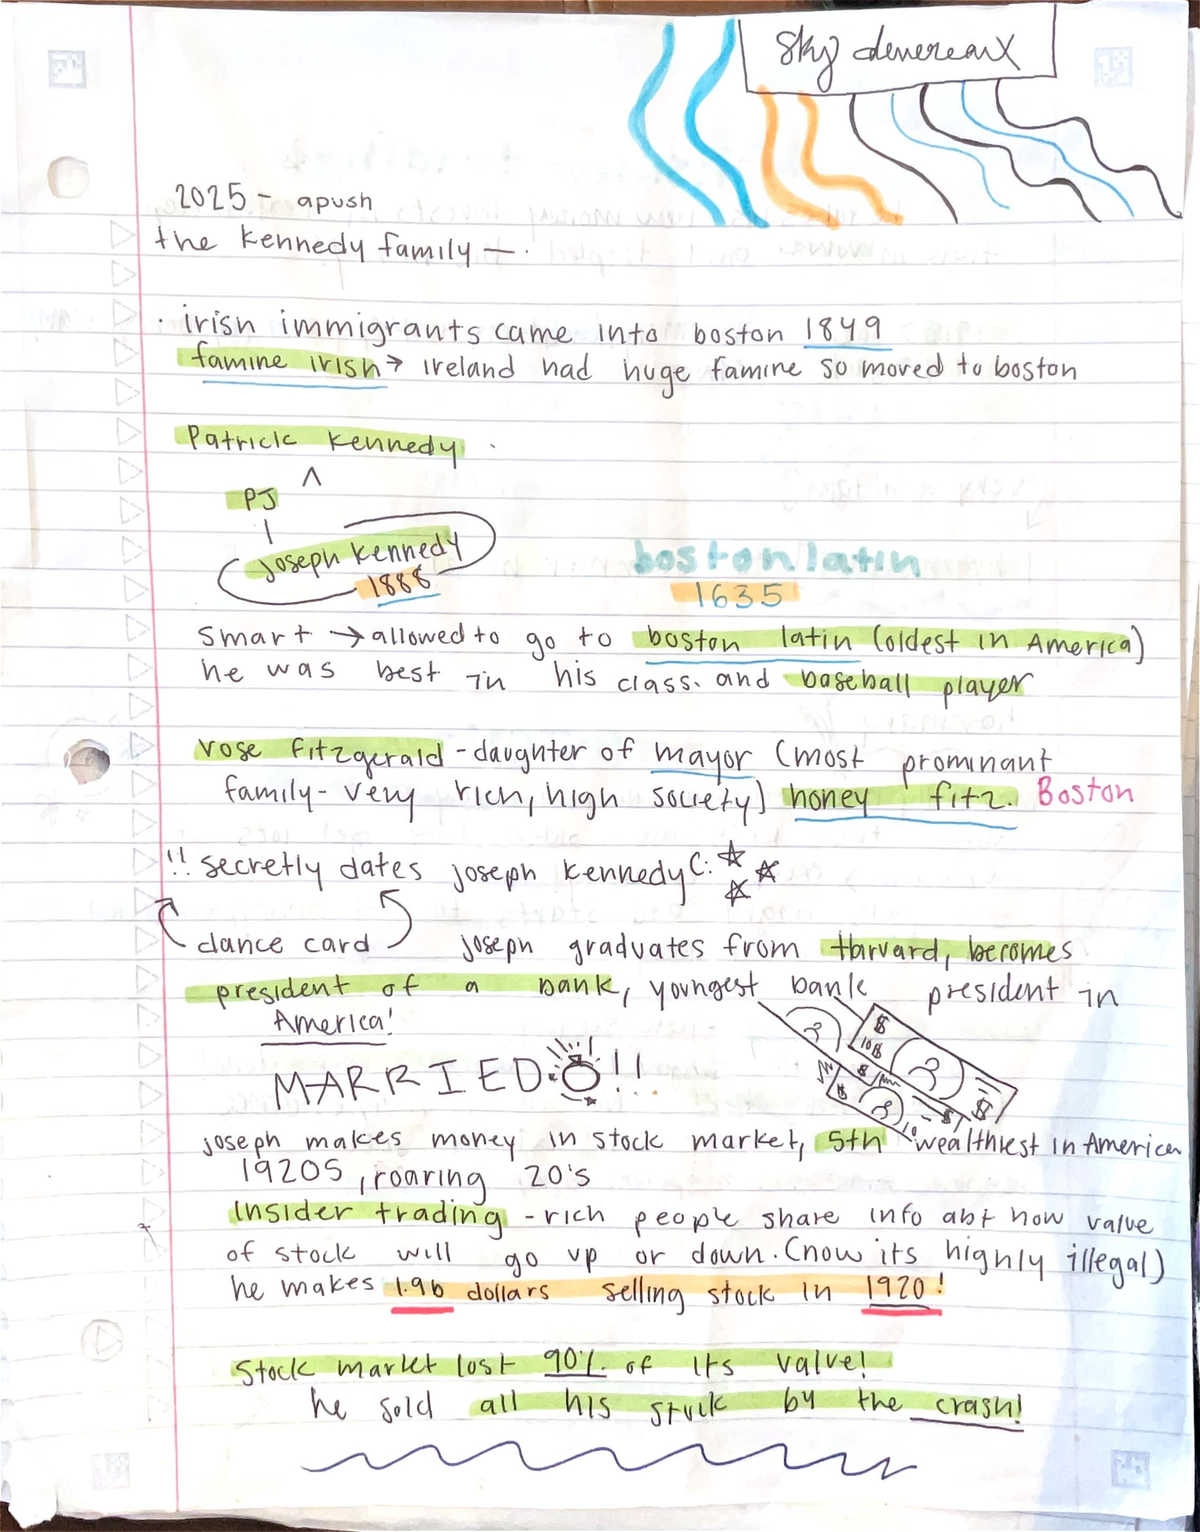 sky devereaux
2025 - apush
the kennedy family - .
· irish immigrants came into boston 1849
famine irish → ireland had huge famine so moved to boston
Patrick Kennedy
PJ
joseph kennedy
1888
boston latin
1635
smart → allowed to go to boston latin (oldest in America)
he was best in his class. and baseball player
rose fitzgerald - daughter of mayor (most prominant
family - very rich, high society) honey fitz. Boston
!! secretly dates joseph kennedy c:
dance card joseph graduates from Harvard, becomes
president of a bank, youngest bank president in
America!
MARRIED !!
$
10$
$
$
$
joseph makes money in stock market, 5th wealthiest in America
1920s, roaring 20's
Insider trading - rich people share info abt how value
of stock will go up or down. (now its highly illegal)
he makes 1.9b dollars selling stock in 1920!
Stock market lost 90% of its value!
he sold all his stuck by the crash!